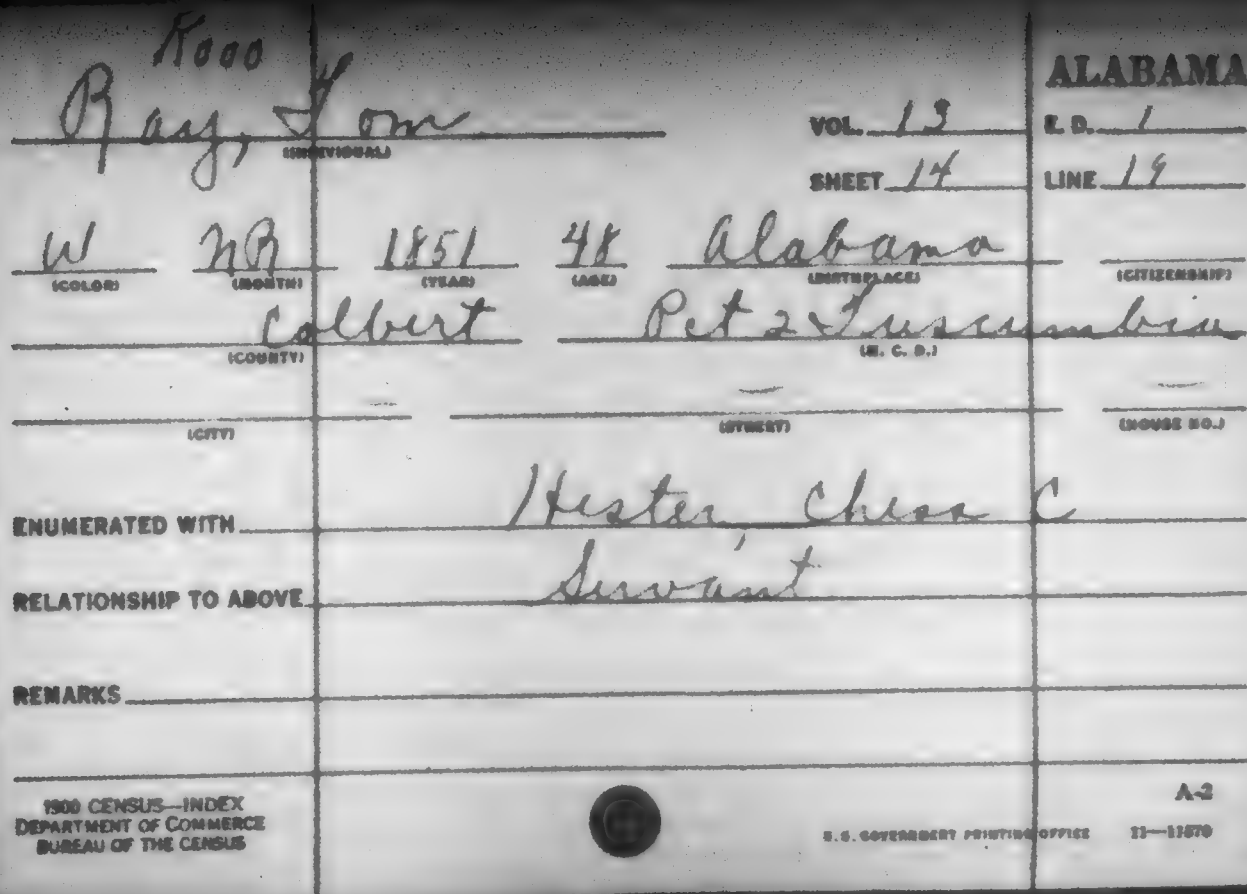 R000
ALABAMA
Ray, Tom
(INDIVIDUAL)
VOL. 13 E. D. 1
SHEET 14 LINE 19
W NR 1851 48 Alabama
(COLOR) (MONTH) (YEAR) (AGE) (BIRTHPLACE) (CITIZENSHIP)
Colbert Pct 2 Tuscumbia
(COUNTY) (M. C. D.)
— — —
(CITY) (STREET) (HOUSE NO.)
ENUMERATED WITH Hester, Chess C
RELATIONSHIP TO ABOVE Servant
REMARKS
1900 CENSUS—INDEX
DEPARTMENT OF COMMERCE
BUREAU OF THE CENSUS
A-2
U.S. GOVERNMENT PRINTING OFFICE 11—11570